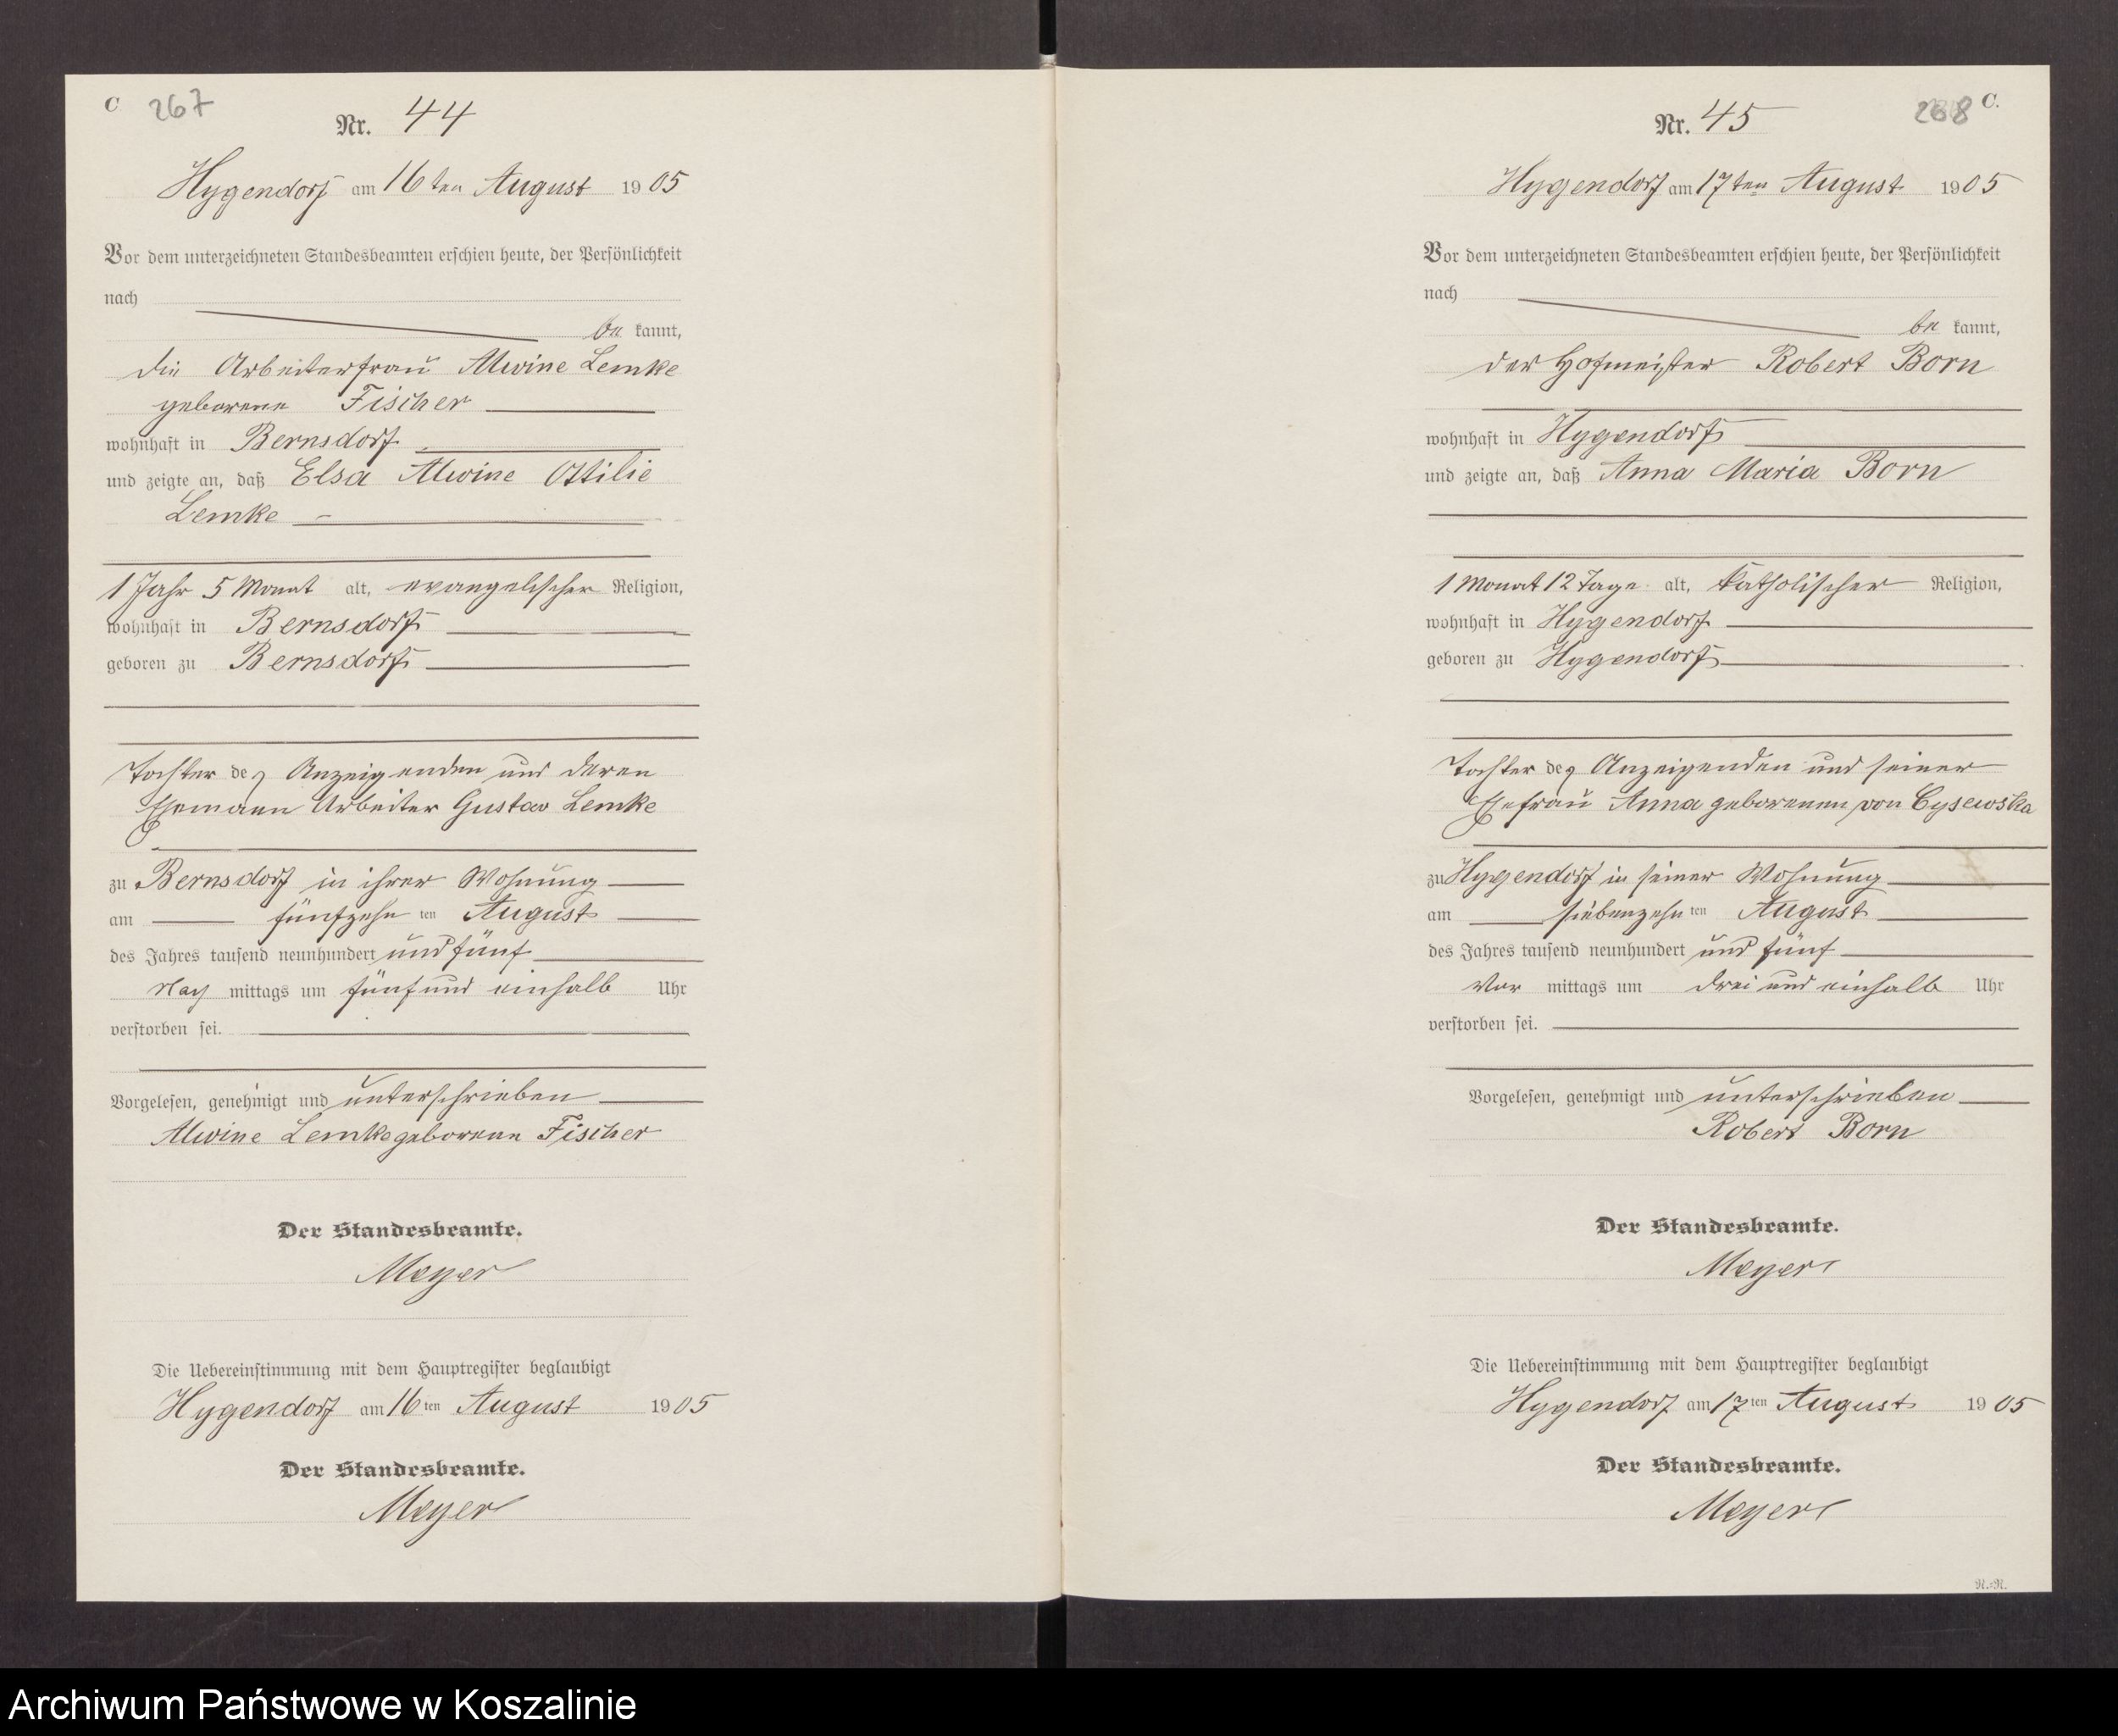 C 267
Nr. 44
Hygendorf am 16ten August 1905
Vor dem unterzeichneten Standesbeamten erschien heute, der Persönlichkeit
nach
be kannt,
die Arbeiterfrau Alwine Lemke
geborene Fischer
wohnhaft in Bernsdorf
und zeigte an, daß Elsa Alwine Ottilie
Lemke
1 Jahr 5 Monat alt, evangelischer Religion,
wohnhaft in Bernsdorf
geboren zu Bernsdorf
Tochter der Anzeigenden und deren
Ehemann Arbeiter Gustav Lemke
zu Bernsdorf in ihrer Wohnung
am fünfzehn ten August
des Jahres tausend neunhundert und fünf
Nach mittags um fünf und einhalb Uhr
verstorben sei.
Vorgelesen, genehmigt und unterschrieben
Alwine Lemke geborene Fischer
Der Standesbeamte.
Meyer
Die Uebereinstimmung mit dem Hauptregister beglaubigt
Hygendorf am 16ten August 1905
Der Standesbeamte.
Meyer
268 C.
Nr. 45
Hygendorf am 17ten August 1905
Vor dem unterzeichneten Standesbeamten erschien heute, der Persönlichkeit
nach
be kannt,
der Hofmeister Robert Born
wohnhaft in Hygendorf
und zeigte an, daß Anna Maria Born
1 Monat 12 Tage alt, katholischer Religion,
wohnhaft in Hygendorf
geboren zu Hygendorf
Tochter des Anzeigenden und seiner
Ehefrau Anna geborenen von Cysewska
zu Hygendorf in seiner Wohnung
am siebenzehn ten August
des Jahres tausend neunhundert und fünf
Vor mittags um drei und einhalb Uhr
verstorben sei.
Vorgelesen, genehmigt und unterschrieben
Robert Born
Der Standesbeamte.
Meyer
Die Uebereinstimmung mit dem Hauptregister beglaubigt
Hygendorf am 17ten August 1905
Der Standesbeamte.
Meyer
N.=N.
Archiwum Państwowe w Koszalinie